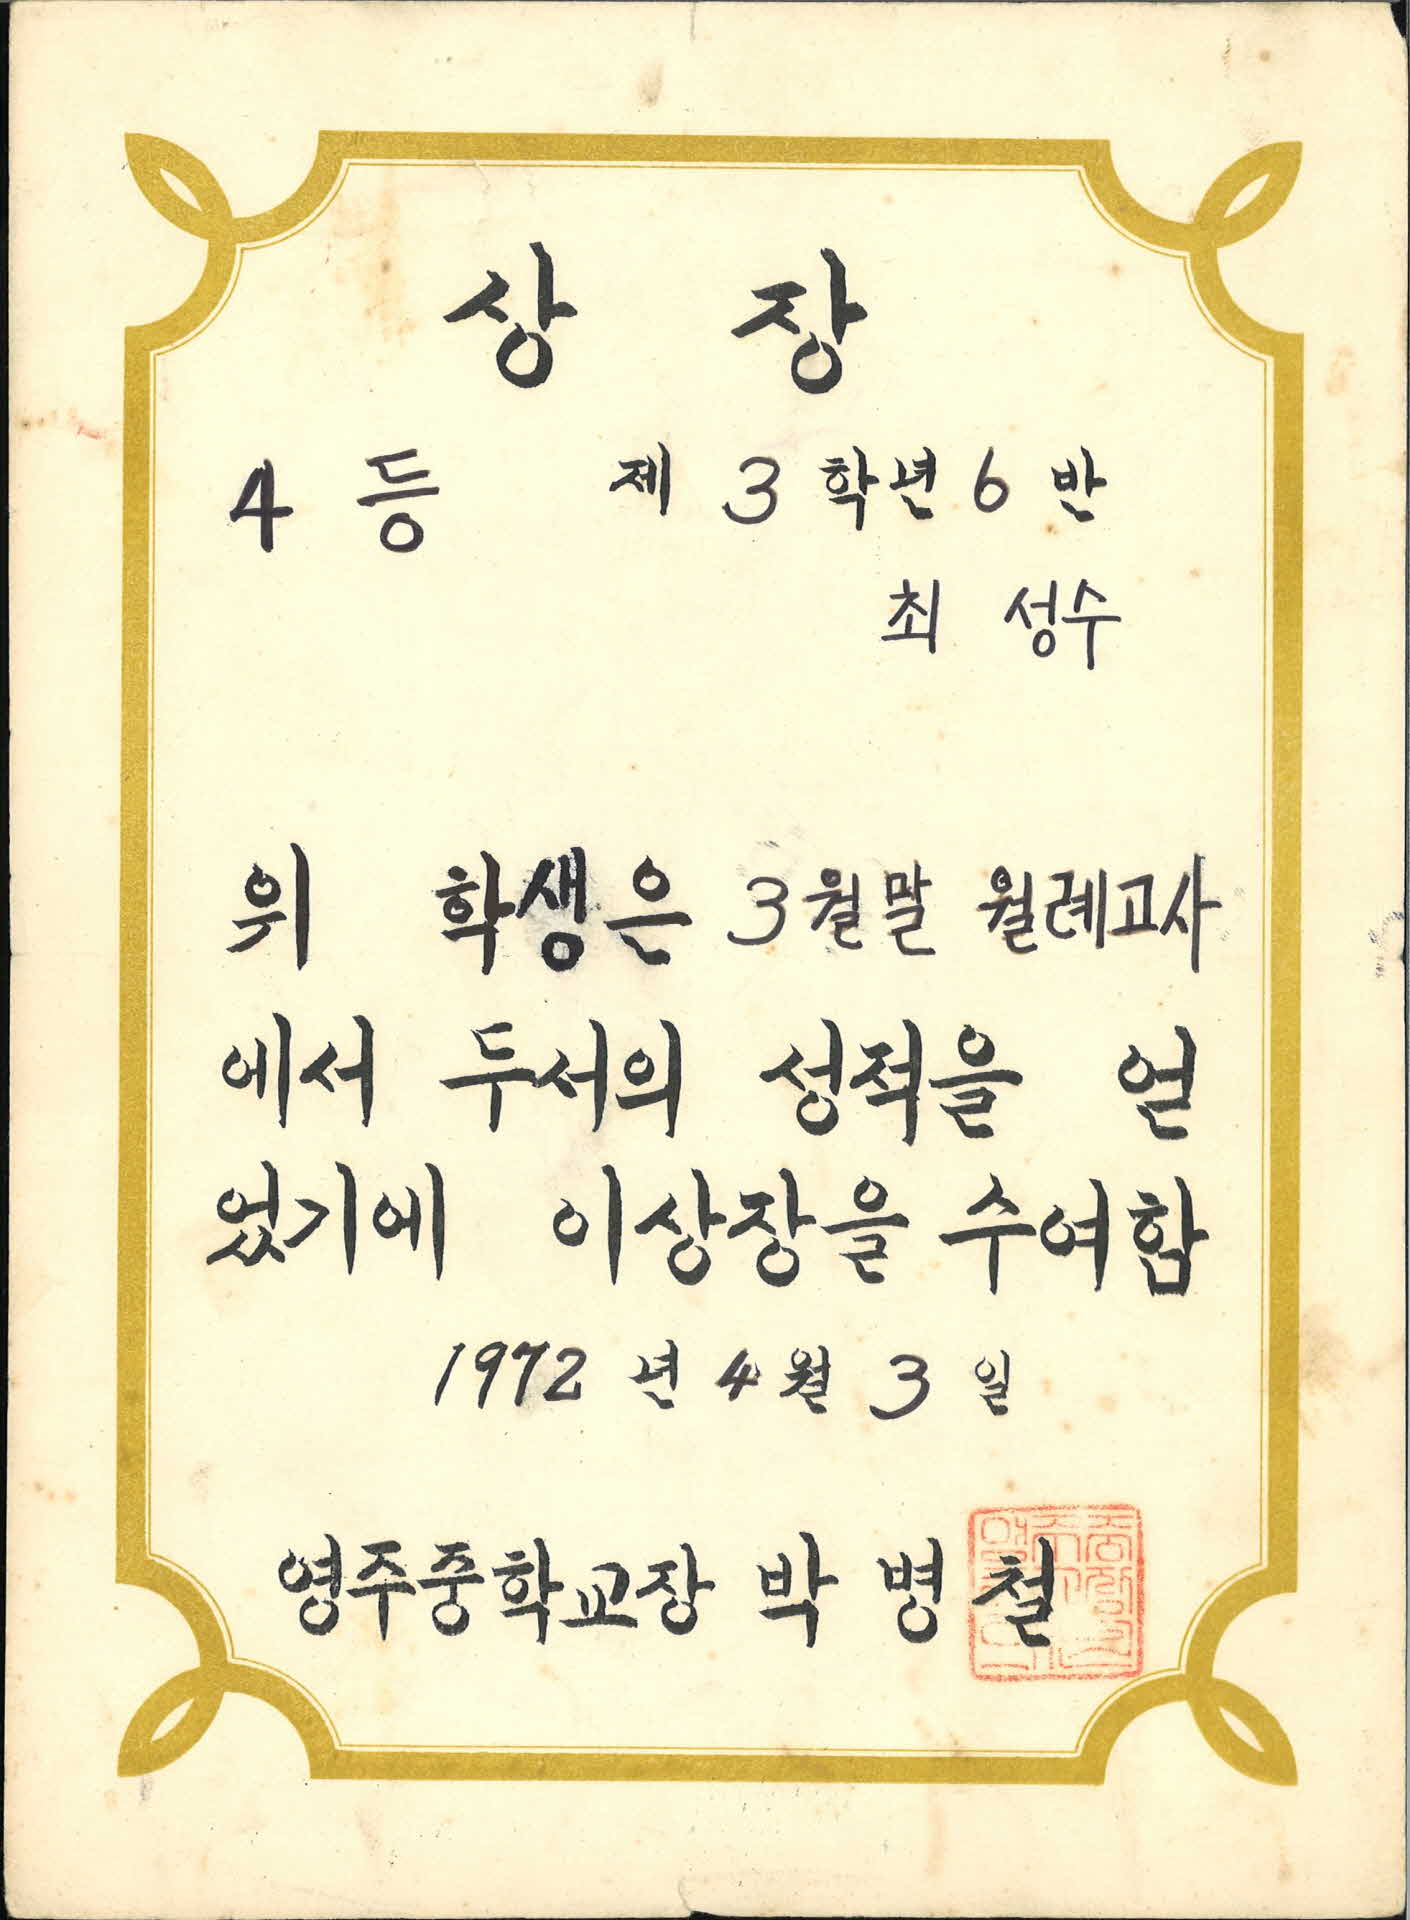 상 장
4 등 제 3 학년 6 반
최 성수
위 학생은 3월말 월례고사
에서 두서의 성적을 얻
었기에 이상장을 수여함
1972 년 4 월 3 일
영주중학교장 박 병 철